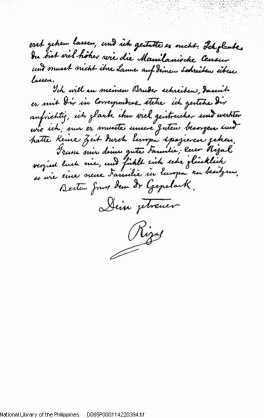 erst gehen lassen, und ich gestatte es nicht. Ich glaube
du bist viel höher wie die Manilanische Censur
und musst nicht ihre Laune auf deinen schreiben üben
lassen.
Ich will zu meinem Bruder schreiben, damit
er mit dir in Correspondenz stehe. ich gestehe dir
aufrichtig, ich glaube ihn viel gebildeter und werther
wie ich; nur er musste unsere Güter besorgen und
hatte keine Zeit durch Europa spazieren gehen.
Grüsse mir deine gute Familie; euer Rizal
vergisst euch nie, und fühlt sich sehr glücklich
so wie eine neue Familie in Europa zu besitzen.
Besten Gruss dem dr
Dein getreuer
Rizal
National Library of the Philippines